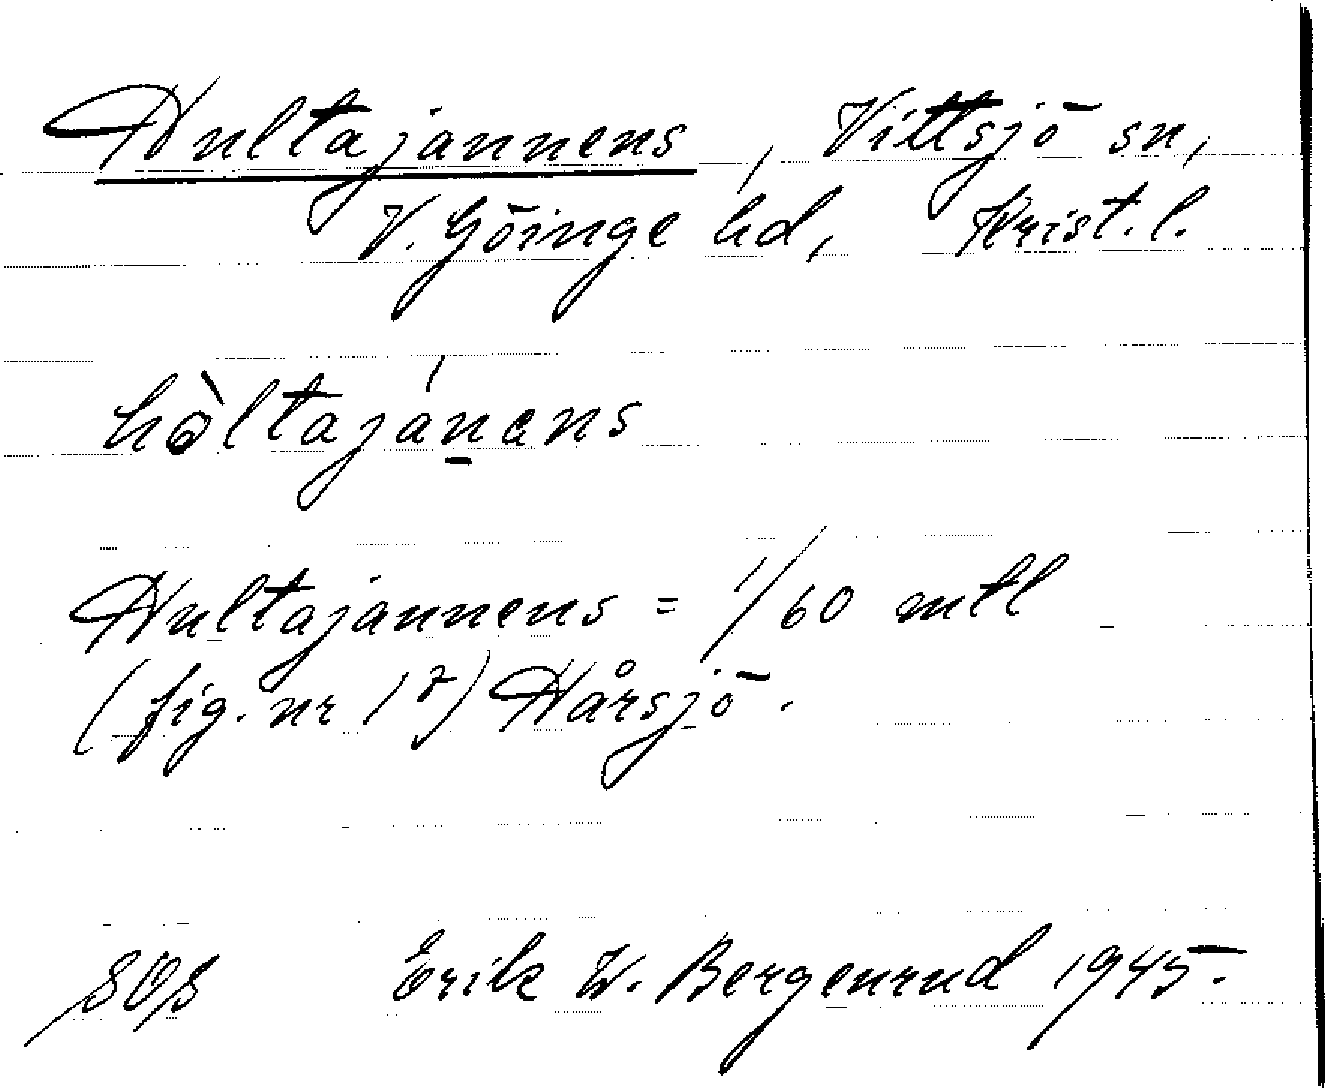 Hultajannens, Vittsjö sn,
V. Göinge hd, Krist. l.
hòltajánans
Hultajannens = 1/60 mtl
(fig. nr 1⁷) Hårsjö.
Erik W. Bergenrud 1945.